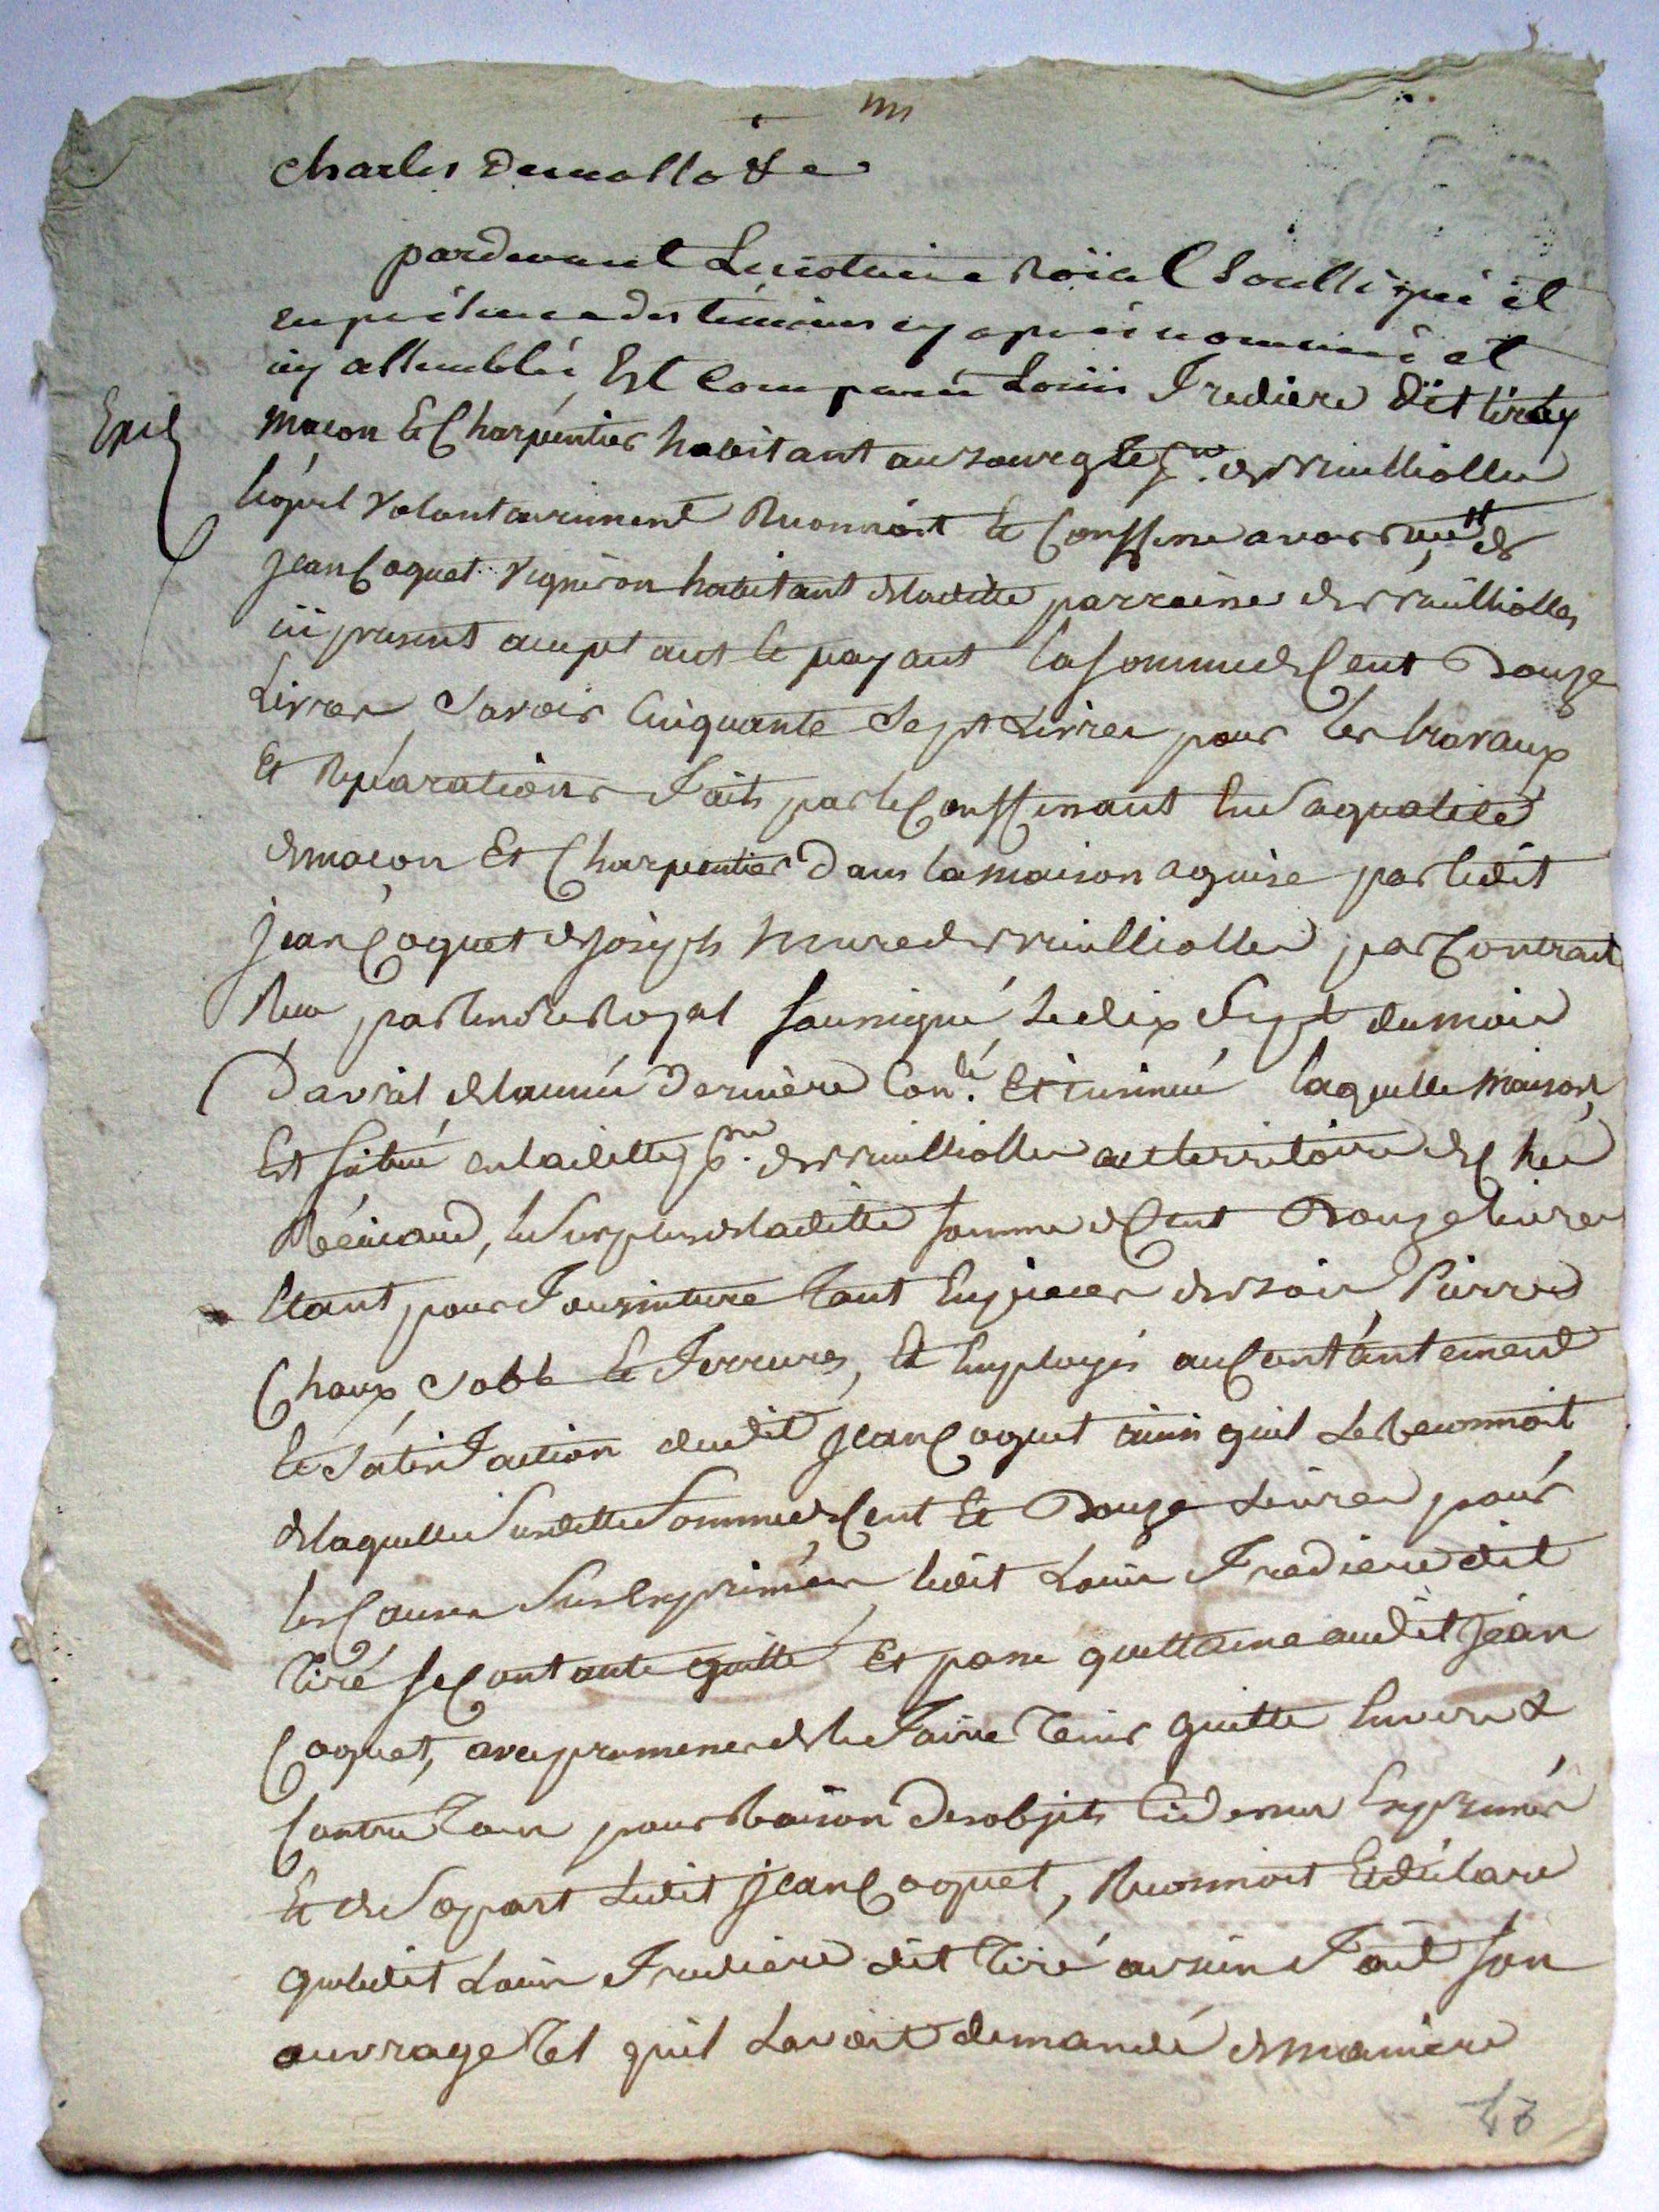 Charles
pardevant Le notaire Roïal Soussigné et
en présence des témoins cy après nommé et
icy assemblés, Est Comparû Loüis Fredière dit tirely
macon et Charpéntier habitant au bourg
lequel volontairement Reconnoit et Confesse avoir de
Jean Coquet vigneron habitant de laditte parroisse de
ici présent acceptant et payant la somme de Cent Douze
Livres, Savoir Cinquante Sept Livres pour les travaux
et Réparations Faits par le Confessant en Sa qualité
de maçon Et Charpentier Dans la maison aquise par ledit
Jean Coquet de Joseph par Contract
Recu par le no.re Royal soussigné, le dix Sept du mois
D'avril de l'année Dernière Con.lé Et insinué laquelle maison,
Est située en laditte p.sse de au territoire de
le Surplus de laditte somme de Cent Douze livres
Etant pour Fourniture Tant En pieces de bois Pierre
Chaux Sable et Ferrures, et Employés au Contentement
et Satisfaction dudit Jean Coquet ainsi quil Le Reconnoit
de laquelle Susditte Somme de Cent et Douze Livres pour
les Causes Sus Exprimées ledit Louis Fredière dit
Tiré se Contante quitte Et passe quittance audit Jean
Coquet, avec promesse de le Faire Tenir Quitte Envers &
Contre Tous pour Raison Des objets Ci Dessus Exprimés
Et de Sa part Ledit Jean Coquet, Reconnoit Et déclare
que ledit Louis Fredière dit Tiré a bien Fait son
ouvrage Tel quil Lavoit demandé de manière